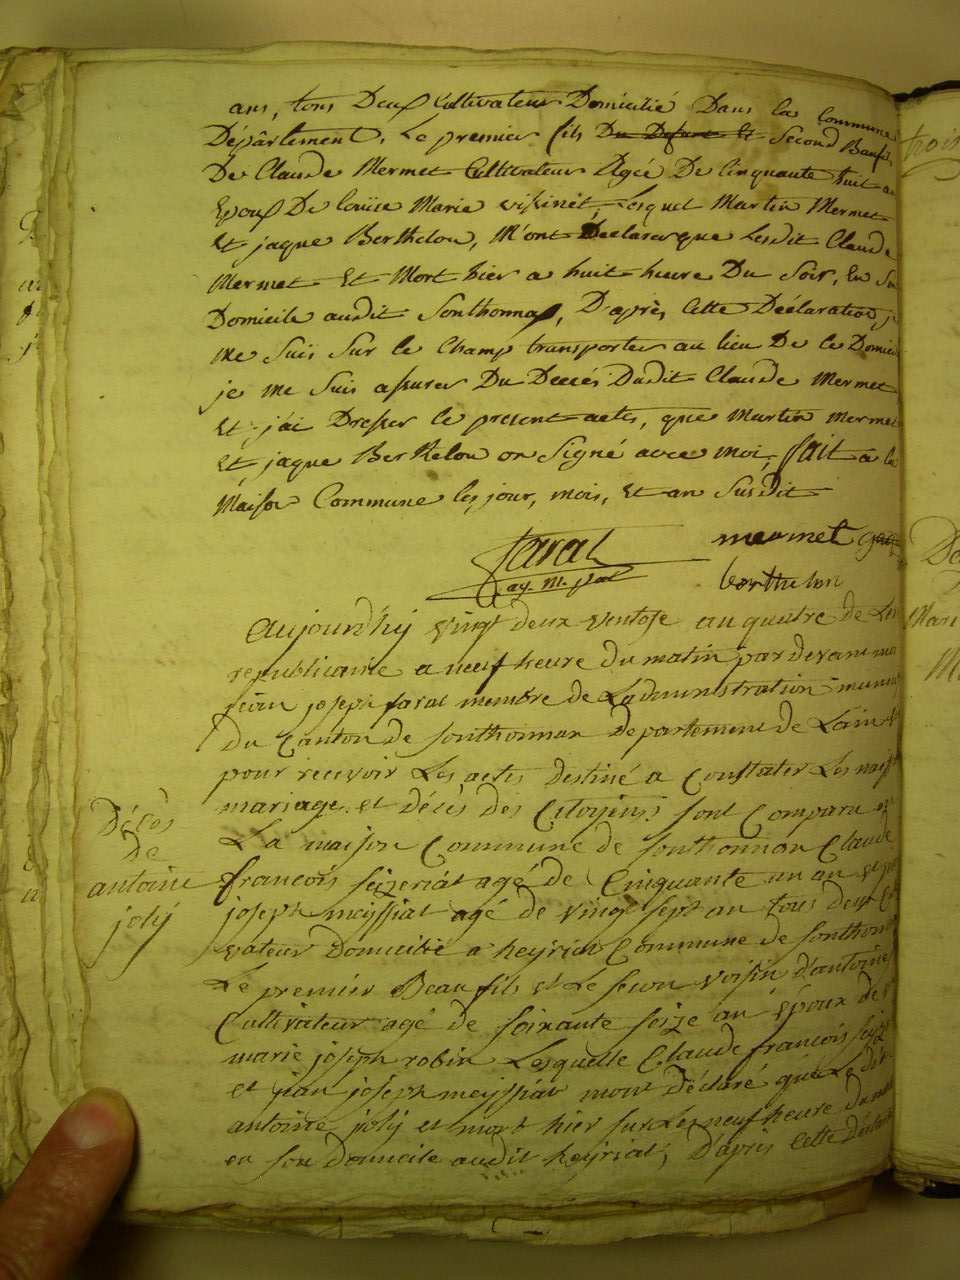 ans, tous Deux Cultivateur Domicilié Dans la Commune
Département, Le premier fils Du Defunt Et Second Beaufi
De Claude Mermet Cultivateur Agée De Cinquante huit an
Epoux De Louise Marie vissinet, Lesquel Martin Mermet
Et jaque Berthelon, M'ont Declarer que Lesdit Claude
Mermet Et Mort hier a huit heure Du Soir, En Son
Domicile audit Sonthonnax, D'après Cette Déclaration, j
me Suis Sur le Champ transporter au lieu De ce Domici
je me Suis assurer Du Deces Dudit Claude Mermet
Et j'ai Dresser le present actes, que Martin Mermet
Et jaque Berthelon on Signé avec moi, fait a la
Maison Commune les jour, mois, Et an Susdit
farat mermet
ag. m. berthelon
Aujourd'hÿ vingt deux ventose an quatre de Lere
republicaine a neuf heure du matin par devant moi
jean joseph farat membre de Ladministration muni
du Canton de sonthonnax departement de Lain
pour recevoir Les actes destiné a Constater Les naiss
mariage et décès des Citoyens sont Comparu en
La maison Commune de sonthonnax Claude
Décès
De
antoine
jolÿ
francois seizeriat agé de Cinquante un an et jean
joseph meissiat agé de vingt sept an tous deux Cul
vateur Domicilié a heyriat Commune de sonthonna
Le premier Beau fils et Le secon voisin d'antoine
Cultivateur agé de soixante seize an époux de
marie joseph robin Lesquelle Claude francois seiz
et jean joseph meissiat mont déclaré que Le dit
antoine jolÿ et mort hier sur Les neuf heure du ma
en son domicile audit heyriat, D'après Cette Déclara